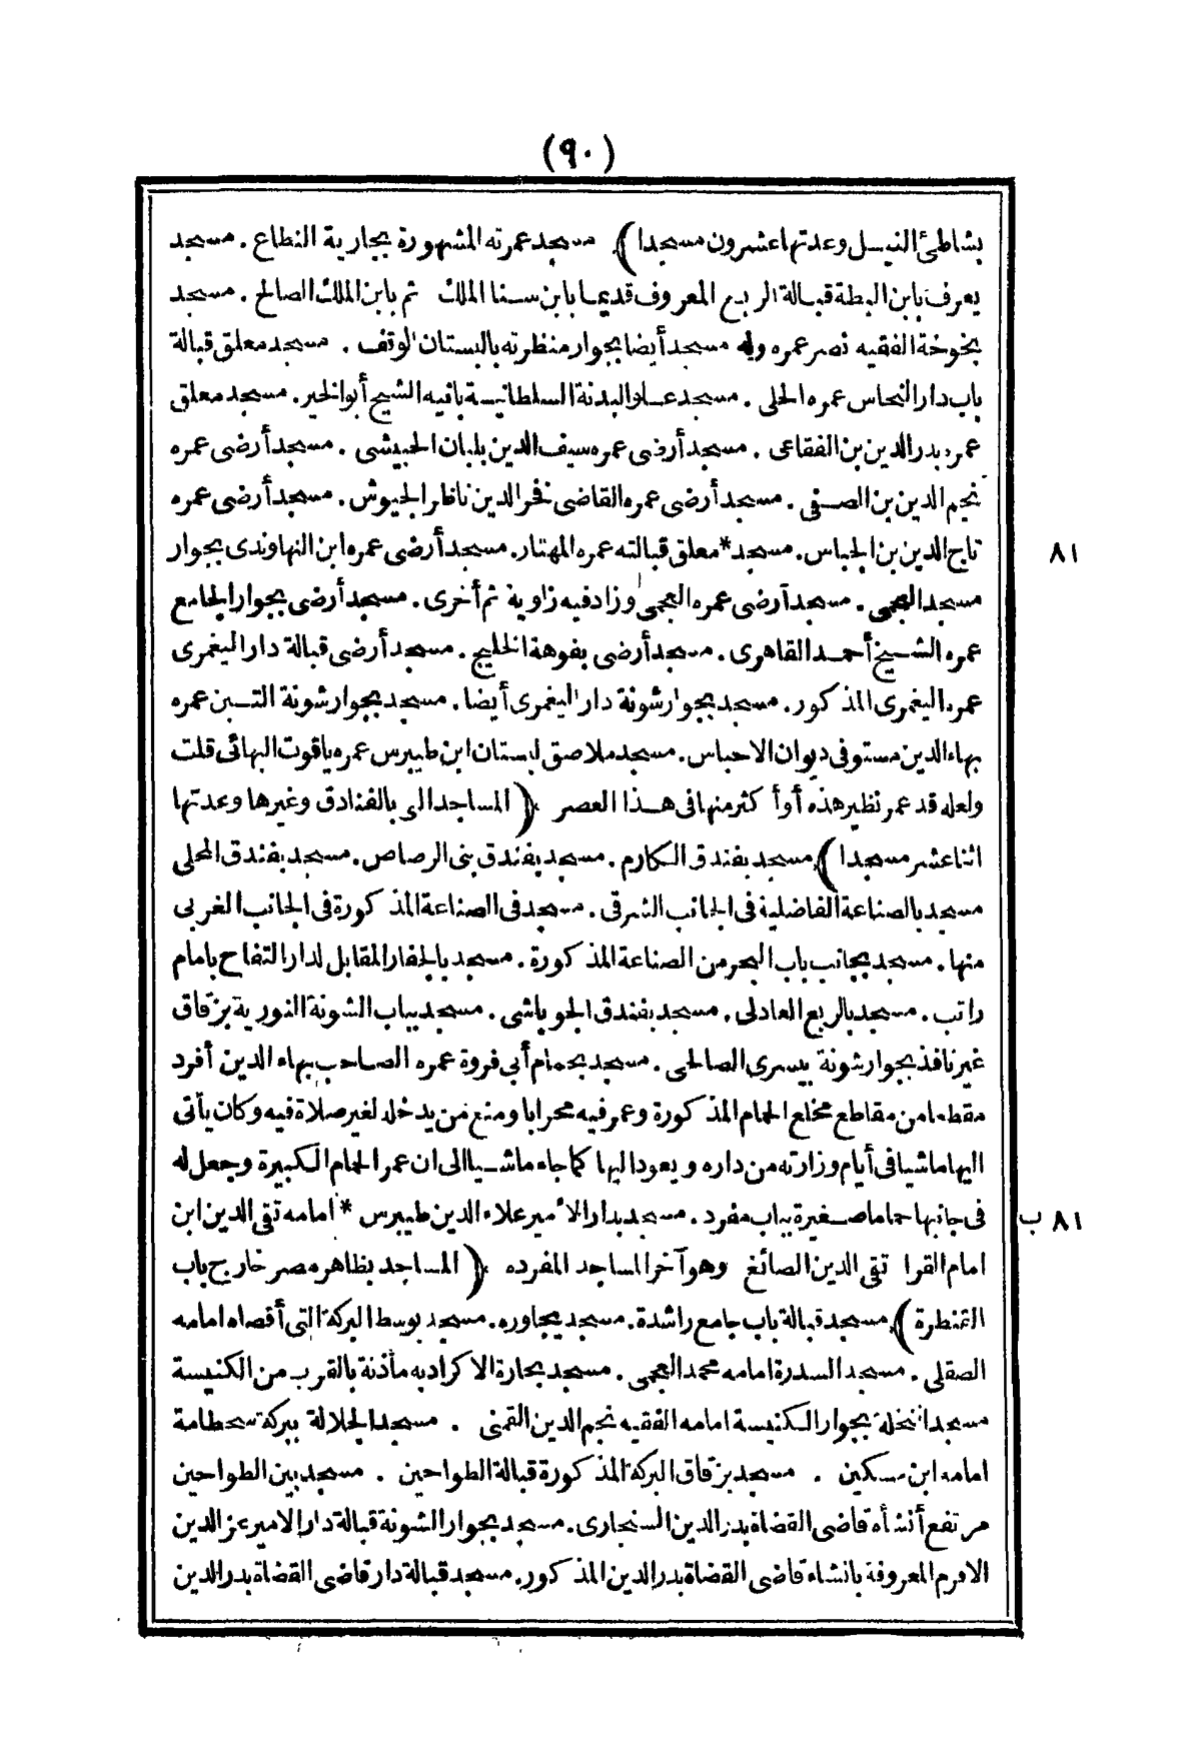 (٩٠)
بشاطئ النيل وعدتها عشرون مسجدا) مسجد عمرته المشهورة بجارية النطاع . مسجد
يعرف بابن البطة قبالة الربع المعروف قديما بابن سنا الملك ثم بابن الملك الصالح . مسجد
بخوخة الفقيه نصر عمره وله مسجد أيضا بجوار منظرته بالبستان لوقف . مسجد معلق قبالة
باب دار النحاس عمره الحلى . مسجد علو البدنة السلطانية بانيه الشيخ أبو الخير. مسجد معلق
عمره بدر الدين بن الفقاعى . مسجد أرضى عمره سيف الدين بلبان الحبيشى . مسجد أرضى عمره
نجم الدين بن الصفى . مسجد أرضى عمره القاضى فخر الدين ناظر الجيوش . مسجد أرضى عمره
تاج الدين بن الجباس. مسجد* معلق قبالته عمره المهتار. مسجد أرضى عمره ابن النهاوندى بجوار
٨١
مسجد العجمى . مسجد أرضى عمره العجمى وزاد فيه زاوية ثم أخرى . مسجد أرضى بجوار الجامع
عمره الشيخ أحمد القاهرى . مسجد أرضى بفوهة الخليج . مسجد أرضى قبالة دار اليغمرى
عمره اليغمرى المذكور. مسجد بجوار شونة دار اليغمرى أيضا. مسجد بجوار شونة التبن عمره
بهاء الدين مستوفى ديوان الاحباس. مسجد ملاصق لبستان ابن طيبرس عمره ياقوت البهائى قلت
ولعله قد عمر نظير هذه أو أكثر منها فى هذا العصر ( المساجد التى بالفنادق وغيرها وعدتها
اثنا عشر مسجدا) مسجد بفندق الكارم . مسجد بفندق بنى الرصاص . مسجد بفندق المحلى
مسجد بالصناعة الفاضلية فى الجانب الشرقى . مسجد فى الصناعة المذكورة فى الجانب الغربى
منها . مسجد بجانب باب البحر من الصناعة المذكورة . مسجد بالجفار المقابل لدار التفاح بامام
راتب . مسجد بالربع العادلى . مسجد بفندق الجوباشى . مسجد بباب الشونة النورية بزقاق
غير نافذ بجوار شونة بيسرى الصالحى . مسجد بحمام أبى فروة عمره الصاحب بهاء الدين أفرد
مقطعا من مقاطع مخلع الحمام المذكورة وعمر فيه محرابا ومنع من يدخله لغير صلاة فيه وكان يأتى
اليها ماشيا فى أيام وزارته من داره ويعود اليها كما جاء ماشيا الى ان عمر الحمام الكبيرة وجعل له
فى جانبها حماما صغيرة بباب مفرد . مسجد بدار الأمير علاء الدين طيبرس * امامه تقى الدين ابن
٨١ ب
امام القرا تقى الدين الصائغ وهو آخر المساجد المفرده ( المساجد بظاهر مصر خارج باب
القنطرة) مسجد قبالة باب جامع راشدة . مسجد يجاوره . مسجد بوسط البركة التى أقصاه امامه
الصقلى . مسجد السدرة امامه محمد العجمى . مسجد بحارة الاكراد به مأذنة بالقرب من الكنيسة
مسجد النخلة بجوار الكنيسة امامه الفقيه نجم الدين القمنى . مسجد الجلالة ببركة سحطامة
امامه ابن سكين . مسجد بزقاق البركة المذكورة قبالة الطواحين . مسجد بين الطواحين
مرتفع أنشأه قاضى القضاة بدر الدين السنجارى . مسجد بجوار الشونة قبالة دار الامير عز الدين
الافرم المعروفة بانشاء قاضى القضاة بدر الدين المذكور. مسجد قبالة دار قاضى القضاة بدر الدين